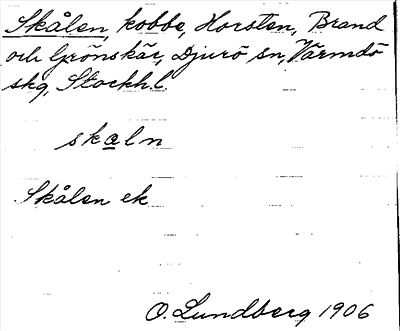 Skålen, kobbe, Horsten, Brand
och Grönskär, Djurö sn, Värmdö
skg, Stockh. l.
skaln
Skålen ek
O. Lundberg 1906